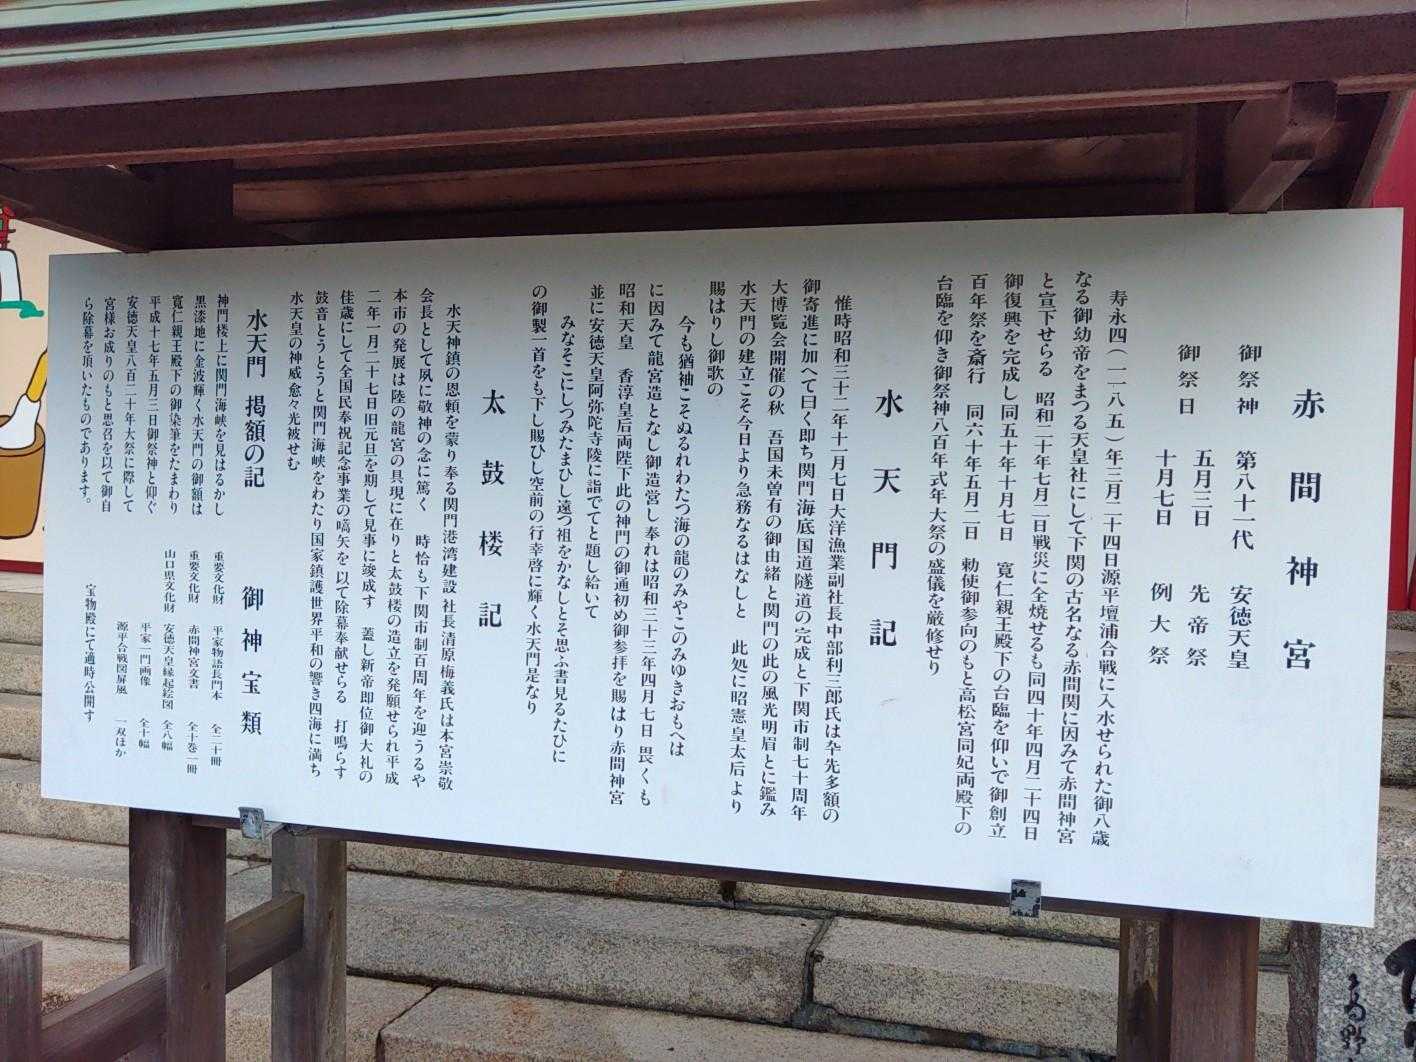 赤間神宮
御祭神　第八十一代　安徳天皇
御祭日　五月三日　先帝祭
十月七日　例大祭
寿永四(一一八五)年三月二十四日源平壇浦合戦に入水せられた御八歳
なる御幼帝をまつる天皇社にして下関の古名なる赤間関に因みて赤間神宮
と宣下せらる　昭和二十年七月二日戦災に全焼せるも同四十年四月二十四日
御復興を完成し同五十年十月七日　寛仁親王殿下の台臨を仰いで御創立
百年祭を斎行　同六十年五月二日　勅使御参向のもと高松宮同妃両殿下の
台臨を仰き御祭神八百年式年大祭の盛儀を厳修せり
水天門記
惟時昭和三十二年十一月七日大洋漁業副社長中部利三郎氏は卒先多額の
御寄進に加へて曰く即ち関門海底国道隧道の完成と下関市制七十周年
大博覧会開催の秋　吾国未曽有の御由緒と関門の此の風光明眉とに鑑み
水天門の建立こそ今日より急務なるはなしと　此処に昭憲皇太后より
賜はりし御歌の
今も猶袖こそぬるれわたつ海の龍のみやこのみゆきおもへは
に因みて龍宮造となし御造営し奉れは昭和三十三年四月七日 畏くも
昭和天皇　香淳皇后両陛下此の神門の御通初め御参拝を賜はり赤間神宮
並に安徳天皇阿弥陀寺陵に詣でてと題し給いて
みなそこにしつみたまひし遠つ祖をかなしとそ思ふ書見るたひに
の御製一首をも下し賜ひし空前の行幸啓に輝く水天門是なり
太鼓楼記
水天神鎮の恩頼を蒙り奉る関門港湾建設 社長清原梅義氏は本宮崇敬
会長として夙に敬神の念に篤く　時恰も下関市制百周年を迎うるや
本市の発展は陸の龍宮の具現に在りと太鼓楼の造立を発願せられ平成
二年一月二十七日旧元旦を期して見事に竣成す　蓋し新帝即位御大礼の
佳歳にして全国民奉祝記念事業の嚆矢を以て除幕奉献せらる　打鳴らす
鼓音とうとうと関門海峡をわたり国家鎮護世界平和の響き四海に満ち
水天皇の神威愈々光被せむ
水天門　掲額の記
神門楼上に関門海峡を見はるかし
黒漆地に金波輝く水天門の御額は
寛仁親王殿下の御染筆をたまわり
平成十七年五月三日御祭神と仰ぐ
安徳天皇八百二十年大祭に際して
宮様お成りのもと思召を以て御自
ら除幕を頂いたものであります。
御神宝類
重要文化財　平家物語長門本　全二十冊
重要文化財　赤間神宮文書　全十巻一冊
山口県文化財　安徳天皇縁起絵図　全八幅
平家一門画像　全十幅
源平合戦図屏風　一双ほか
宝物殿にて適時公開す
高野